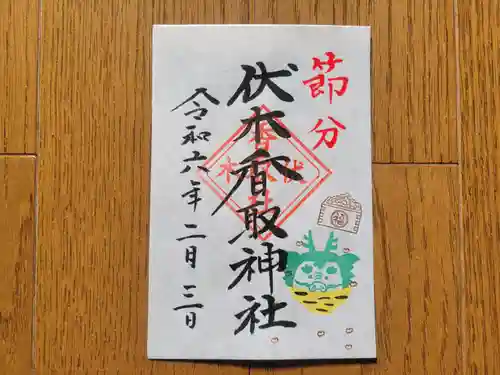 節分
伏木香取神社
令和六年二月三日
福